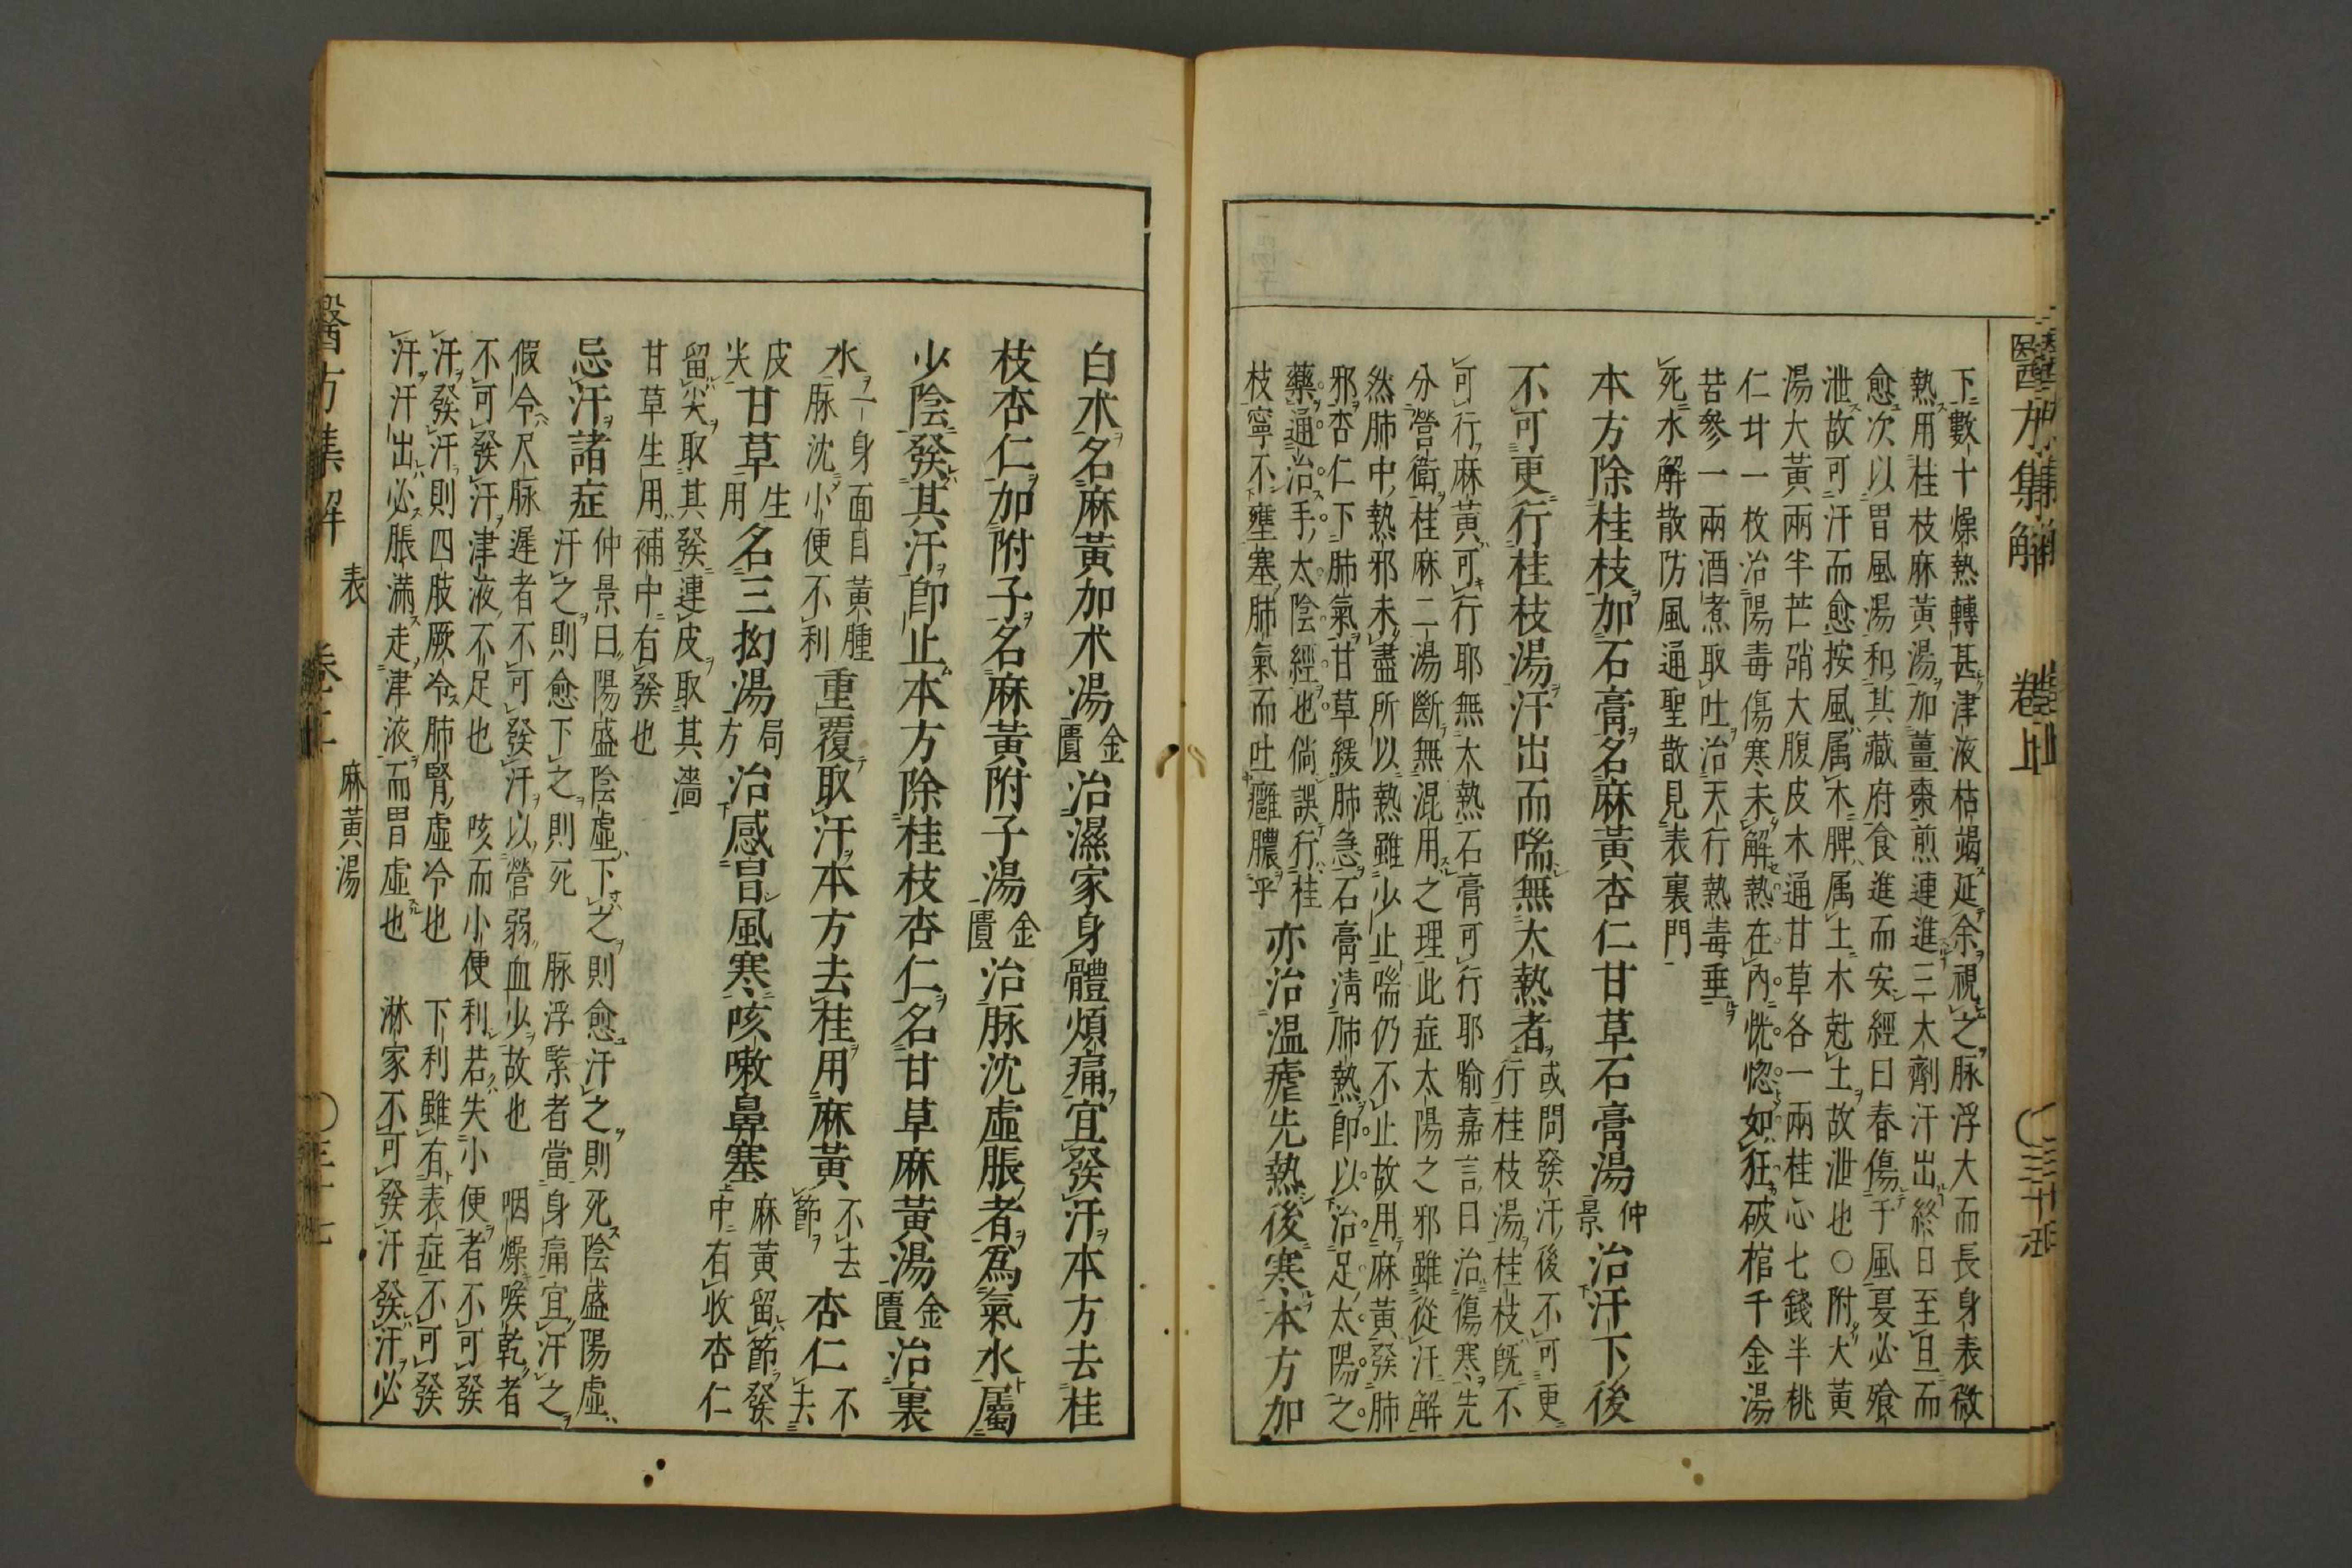 下數十燥熱轉甚津液枯竭延余視之脉浮大而長身表微
熱用桂枝麻黃湯加薑棗煎連進三大劑汗出終日至旦而
愈次以胃風湯和其藏府食進而安經曰春傷于風夏必飱
泄故可汗而愈按風属木脾属土木尅土故泄也○附大黃
湯大黃兩半芒硝大腹皮木通甘草各一兩桂心七錢半桃
仁廿一枚治陽毒傷寒未解熱在內恍惚如狂破棺千金湯
苦參一兩酒煮取吐治天行熱毒垂
死水解散防風通聖散見表裏門
本方除桂枝加石膏名麻黃杏仁甘草石膏湯仲景治汗下後
不可更行桂枝湯汗出而喘無大熱者或問發汗後不可更
行桂枝湯桂枝旣不
可行麻黃可行耶無大熱石膏可行耶喻嘉言曰治傷寒先
分營衛桂麻二湯斷無混用之理此症太陽之邪雖從汗解
然肺中熱邪未盡所以熱雖少止喘仍不止故用麻黃發肺
邪杏仁下肺氣甘草緩肺急石膏淸肺熱卽以治足太陽之
藥通治手太陰經也倘誤行桂
枝寧不壅塞肺氣而吐癰膿乎亦治溫瘧先熱後寒本方加
醫方集解 卷上
白朮名麻黃加朮湯金匱治濕家身體煩痛宜發汗本方去桂
枝杏仁加附子名麻黃附子湯金匱治脉沈虛脹者爲氣水屬
少陰發其汗卽止本方除桂枝杏仁名甘草麻黃湯金匱治裏
水一身面目黃腫
脉沈小便不利重覆取汗本方去桂用麻黃不去
節杏仁不
去
皮
尖甘草生
用名三拗湯局
方治感冒風寒咳嗽鼻塞麻黃留節發
中有收杏仁
留尖取其發連皮取其濇
甘草生用補中有發也
忌汗諸症仲景曰陽盛陰虛下之則愈汗之則死陰盛陽虛
汗之則愈下之則死 脉浮緊者當身痛宜汗之
假令尺脉遲者不可發汗以營弱血少故也 咽燥喉乾者
不可發汗津液不足也 咳而小便利若失小便者不可發
汗發汗則四肢厥冷肺腎虛冷也 下利雖有表症不可發
汗汗出必脹滿走津液而胃虛也 淋家不可發汗發汗必
醫方集解 表 麻黃湯